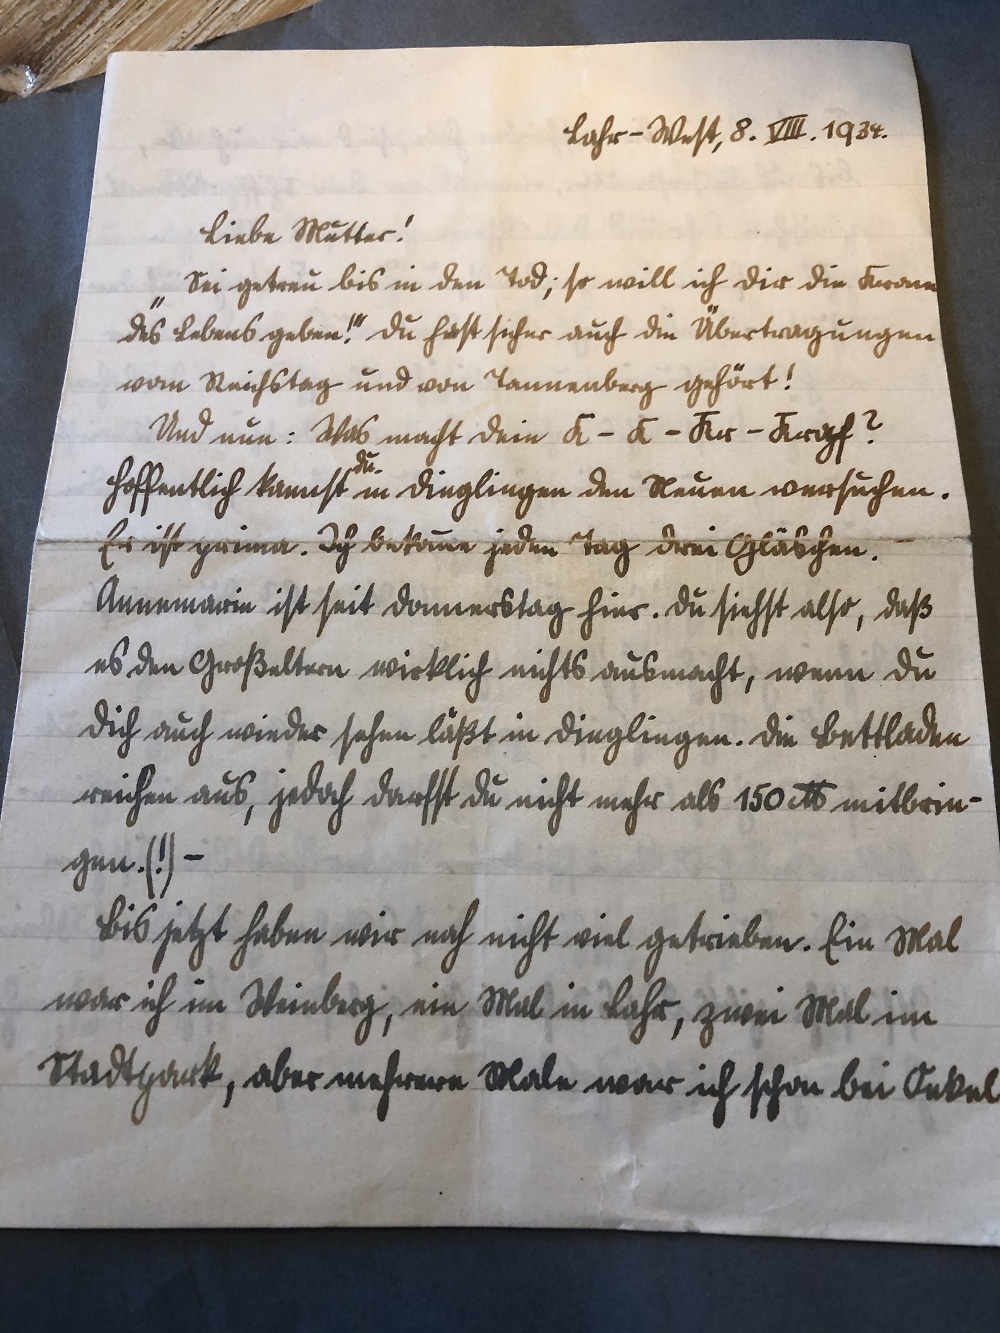 Lahr-West, 8. VIII. 1934.
Liebe Mutter!
„Sei getreu bis in den Tod; so will ich dir die Krone
des Lebens geben!" Du hast sicher auch die Übertragungen
vom Reichstag und von Tannenberg gehört!
Und nun: Was macht Dein K - K - Kr - Kropf?
Hoffentlich kannst du in Dinglingen den Neuen versuchen.
Er ist prima. Ich bekomme jeden Tag drei Gläschen.
Annemarie ist seit Donnerstag hier. Du siehst also, daß
es den Großeltern wirklich nichts ausmacht, wenn Du
Dich auch wieder sehen läßt in Dinglingen. Die Bettladen
reichen aus, jedoch darfst Du nicht mehr als 150 ℔ mitbrin-
gen.(!) -
Bis jetzt haben wir noch nicht viel getrieben. Ein Mal
war ich im Weinberg, ein Mal in Lahr, zwei Mal im
Stadtpark, aber mehrere Male war ich schon bei Onkel